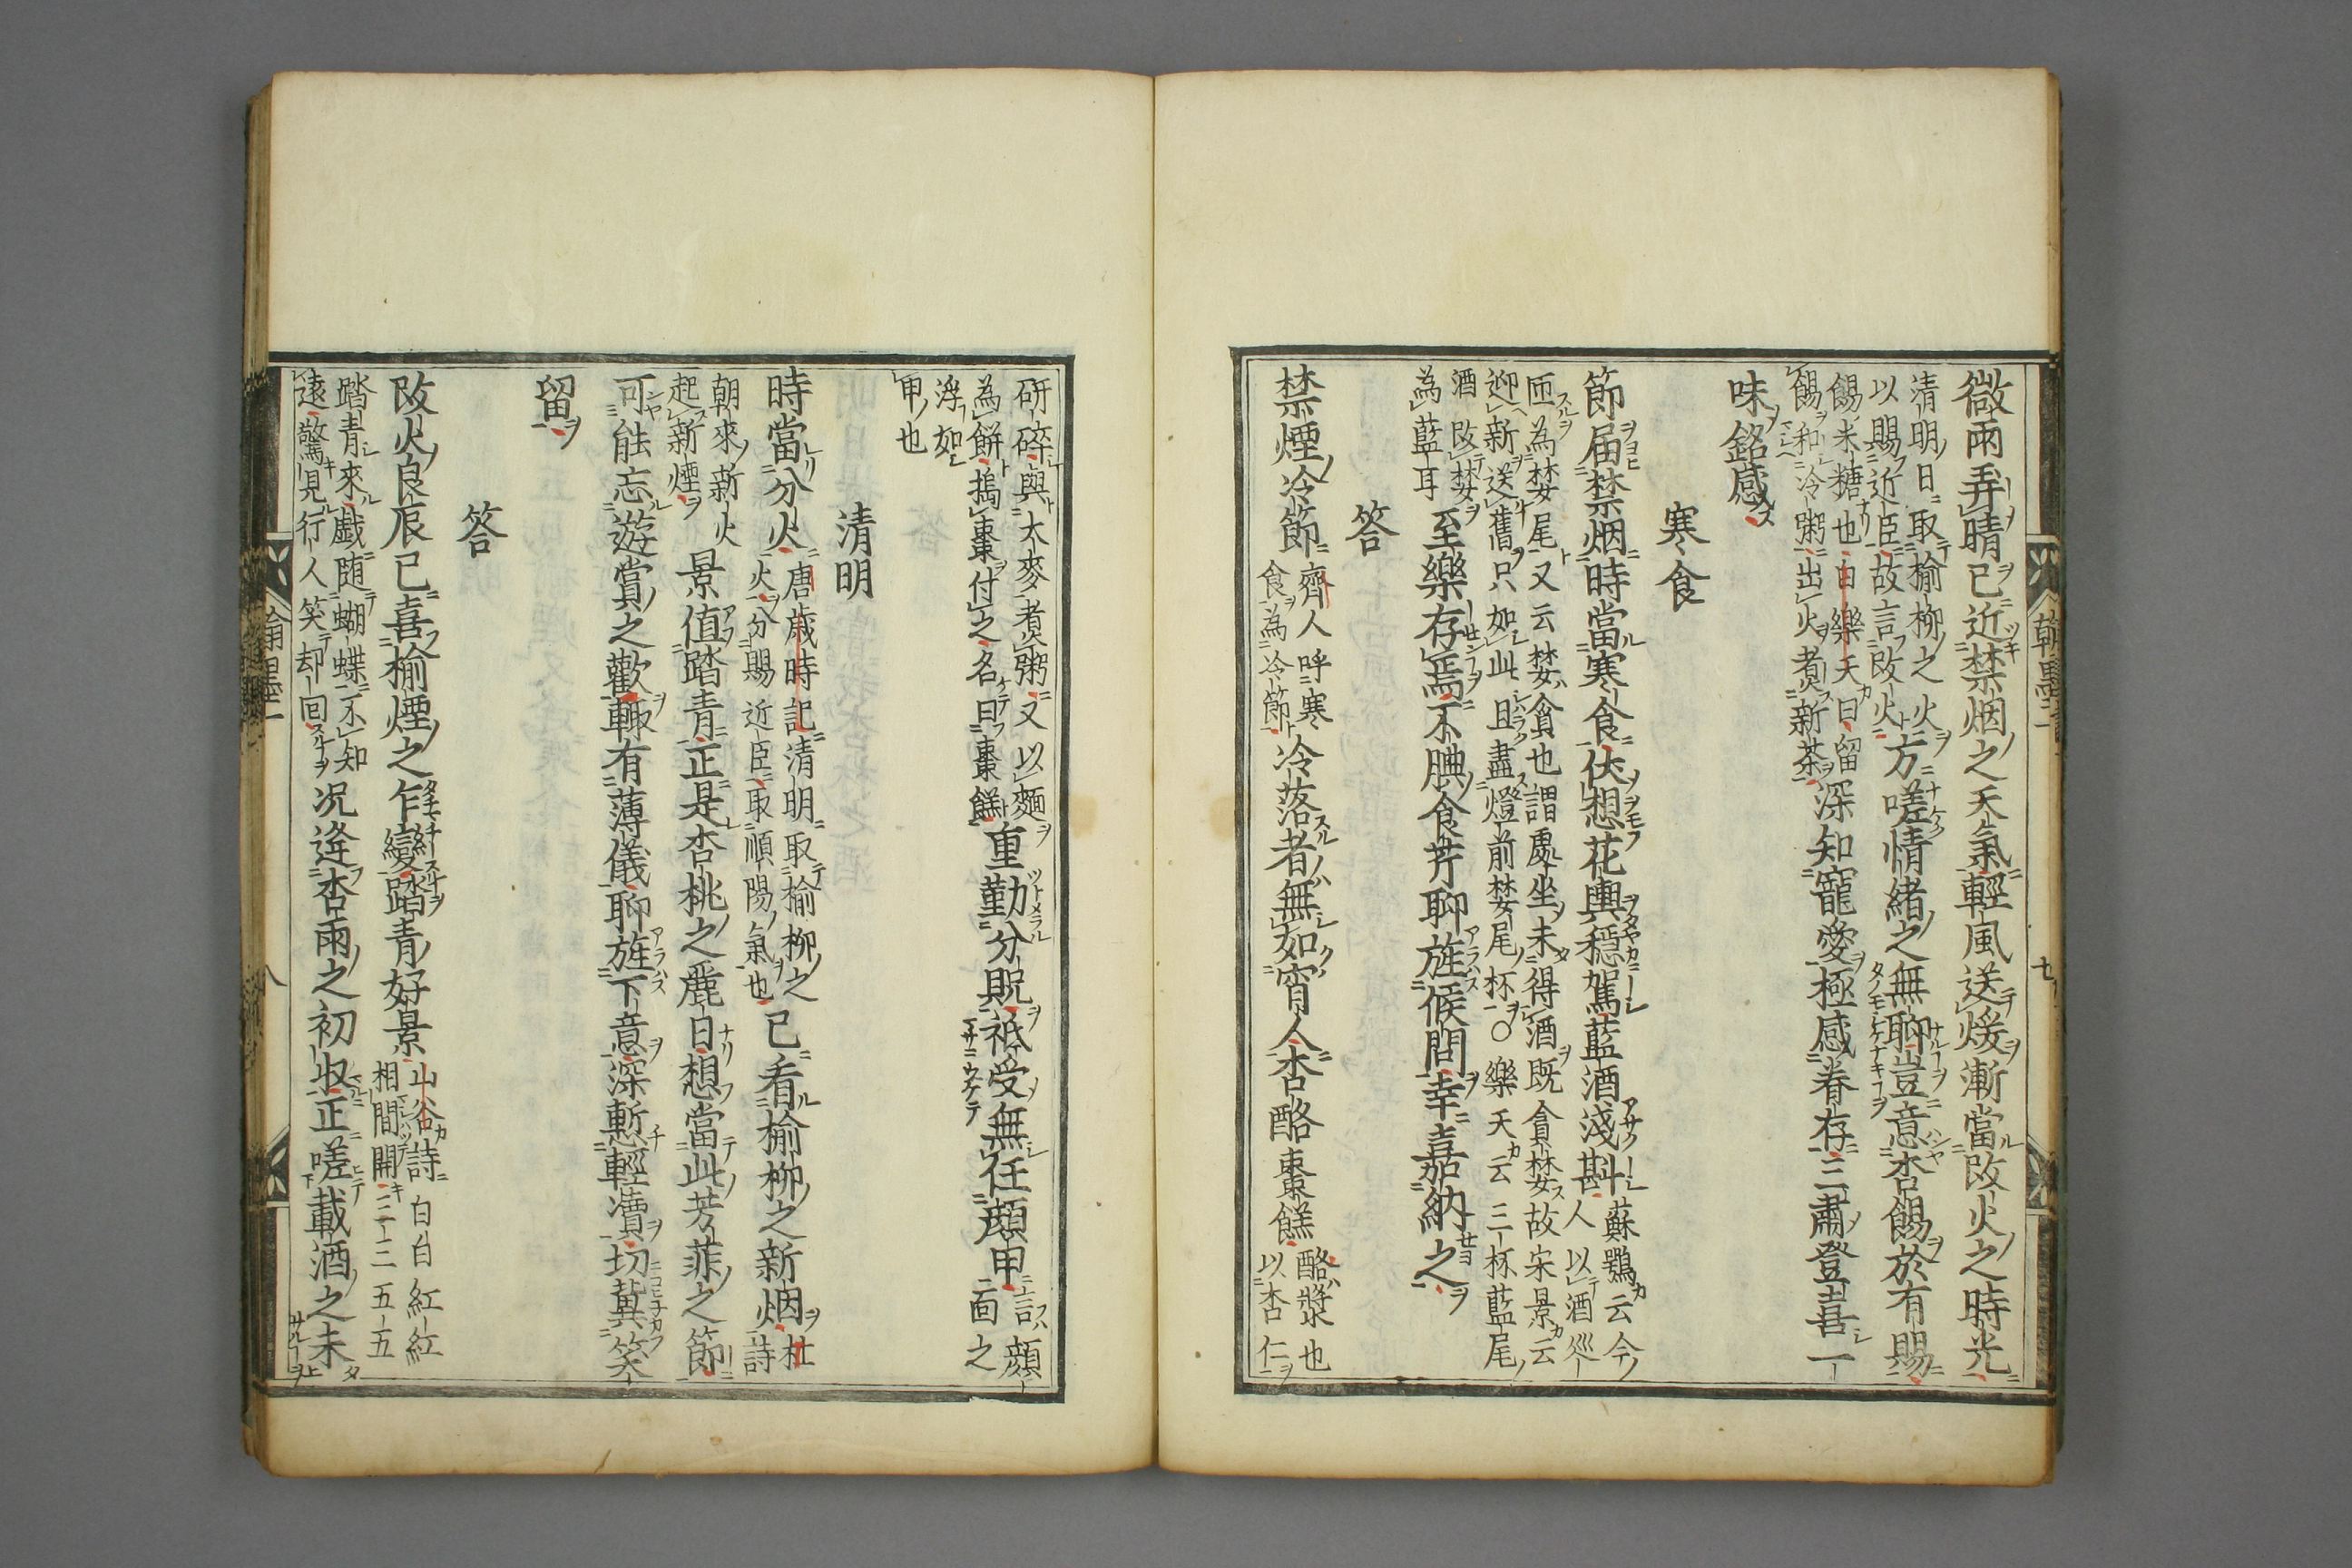 微雨弄晴已近禁烟之天氣輕風送煖漸當改火之時光
清明日取榆柳之火
以賜近臣故言改火
方嗟情緒之無聊豈意杏餳於有賜
餳米糖也白樂天曰留
餳和冷粥出火煮新茶
深知寵愛極感眷存三肅登喜一
味銘感
寒食
節届禁烟時當寒食伏想花輿穩駕藍酒淺斟
蘇鶚云今
人以酒巡
匝為婪尾又云婪貪也謂處坐未得酒既貪婪故宋景云
迎新送舊只如此且盡燈前婪尾杯○樂天云三杯藍尾
酒改婪
為藍耳
至樂存焉不腆食芹聊旌候問幸嘉納之
答
禁煙冷節
齊人呼寒
食為冷節
冷落者無如窮人杏酪棗餻
酪漿也
以杏仁
研碎與大麥煮粥又以麵
為餅搗棗付之名曰棗餻
重勤分貺祗受無任顔甲
言顔
面之
浮如
甲也
清明
時當分火
唐歳時記清明取榆柳之
火分賜近臣取順陽氣也
已看榆柳之新烟
杜詩
朝來新火
起新煙
景值踏青正是杏桃之麗日想當此芳菲之節
可能忘遊賞之歡輙有薄儀聊旌下意深慙輕瀆切冀笑
留
答
改火良辰已喜榆煙之乍變踏青好景
山谷詩白白紅紅
相間開三三五五
踏青來戯随蝴蝶不知
遠驚見行人笑却回
况逢杏雨之初収正嗟載酒之未
翰墨二
七
八